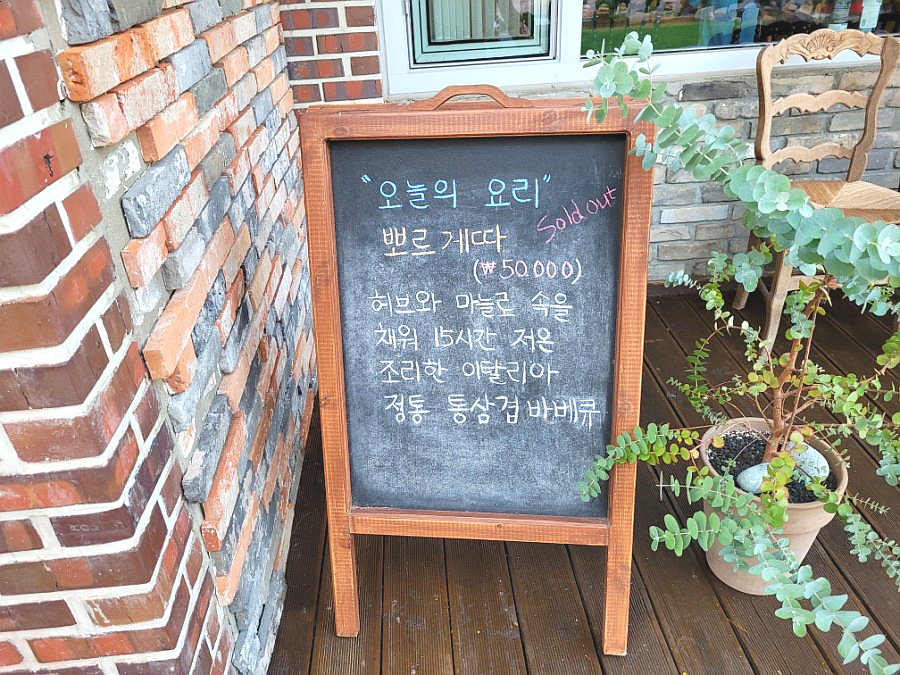 "오늘의 요리"
Sold out
뽀르게따
(₩50.000)
허브와 마늘로 속을
채워 15시간 저온
조리한 이탈리아
정통 통삼겹 바베큐